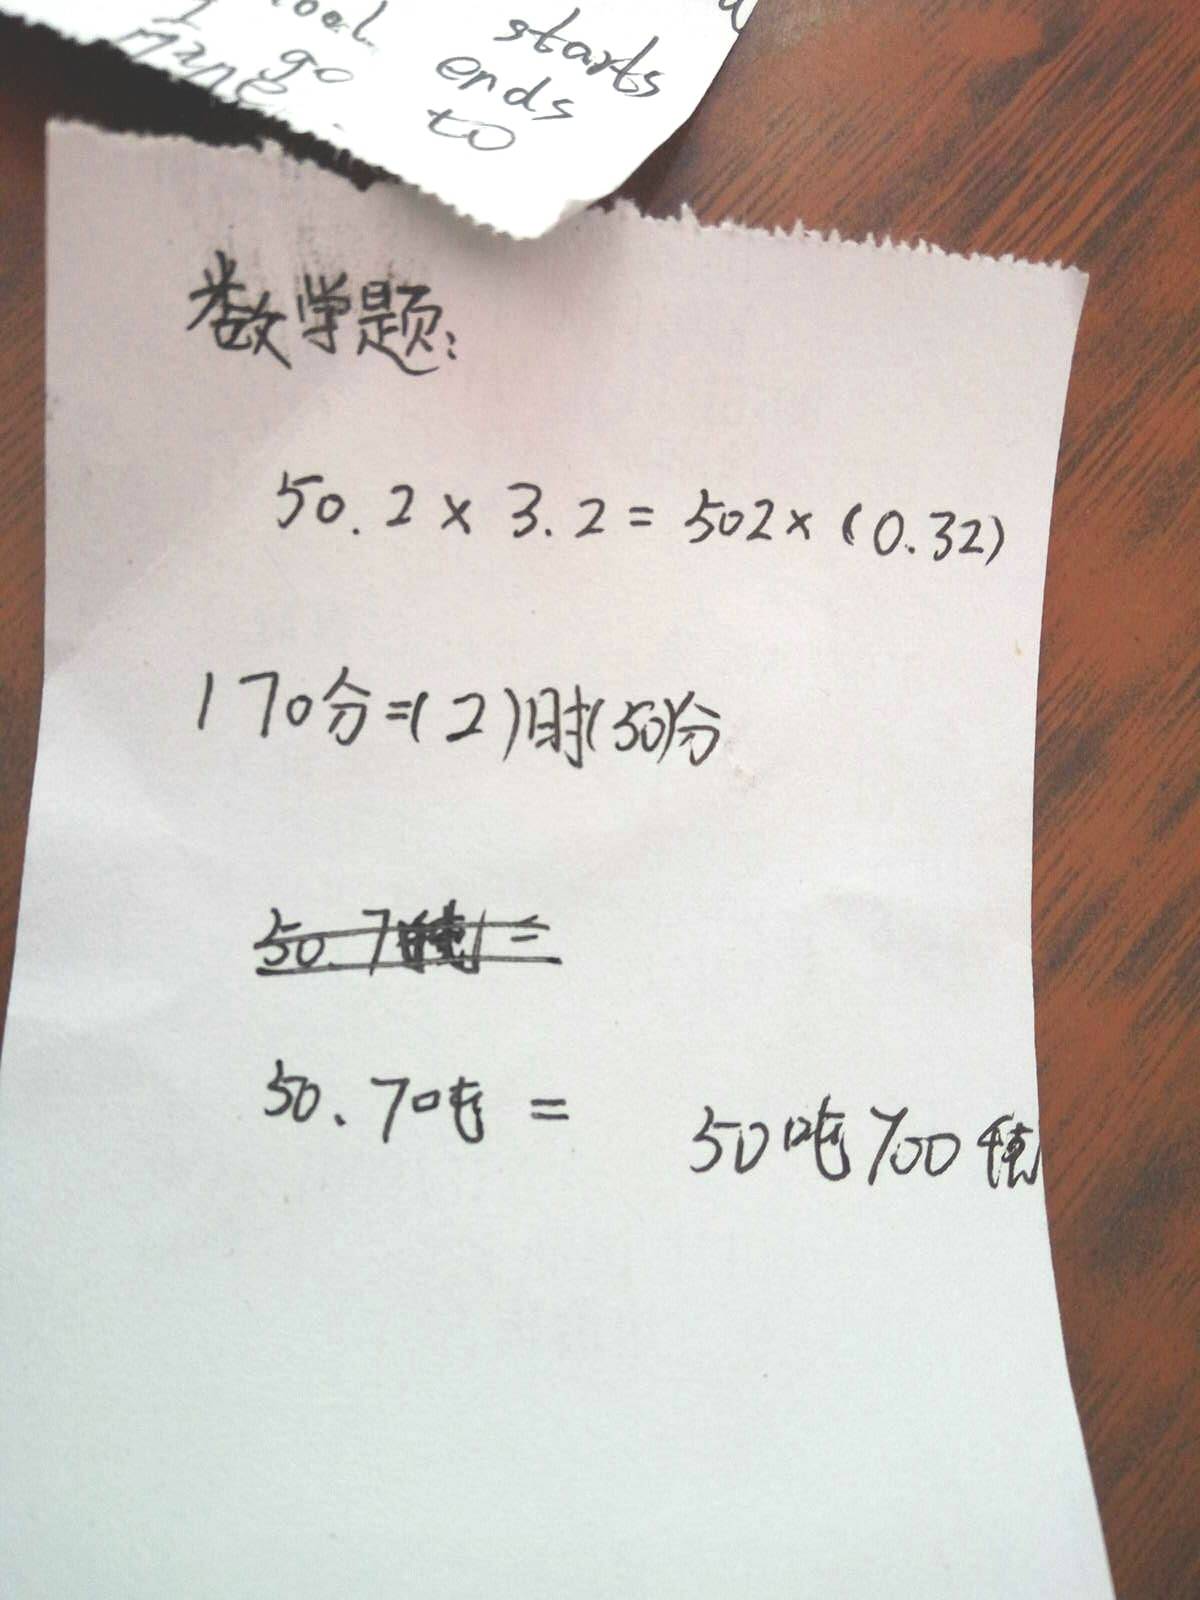 starts
go ends
to
数学题:
50.2×3.2=502×(0.32)
170分=(2)时(50)分
50.7
50.70吨= 50吨700千克